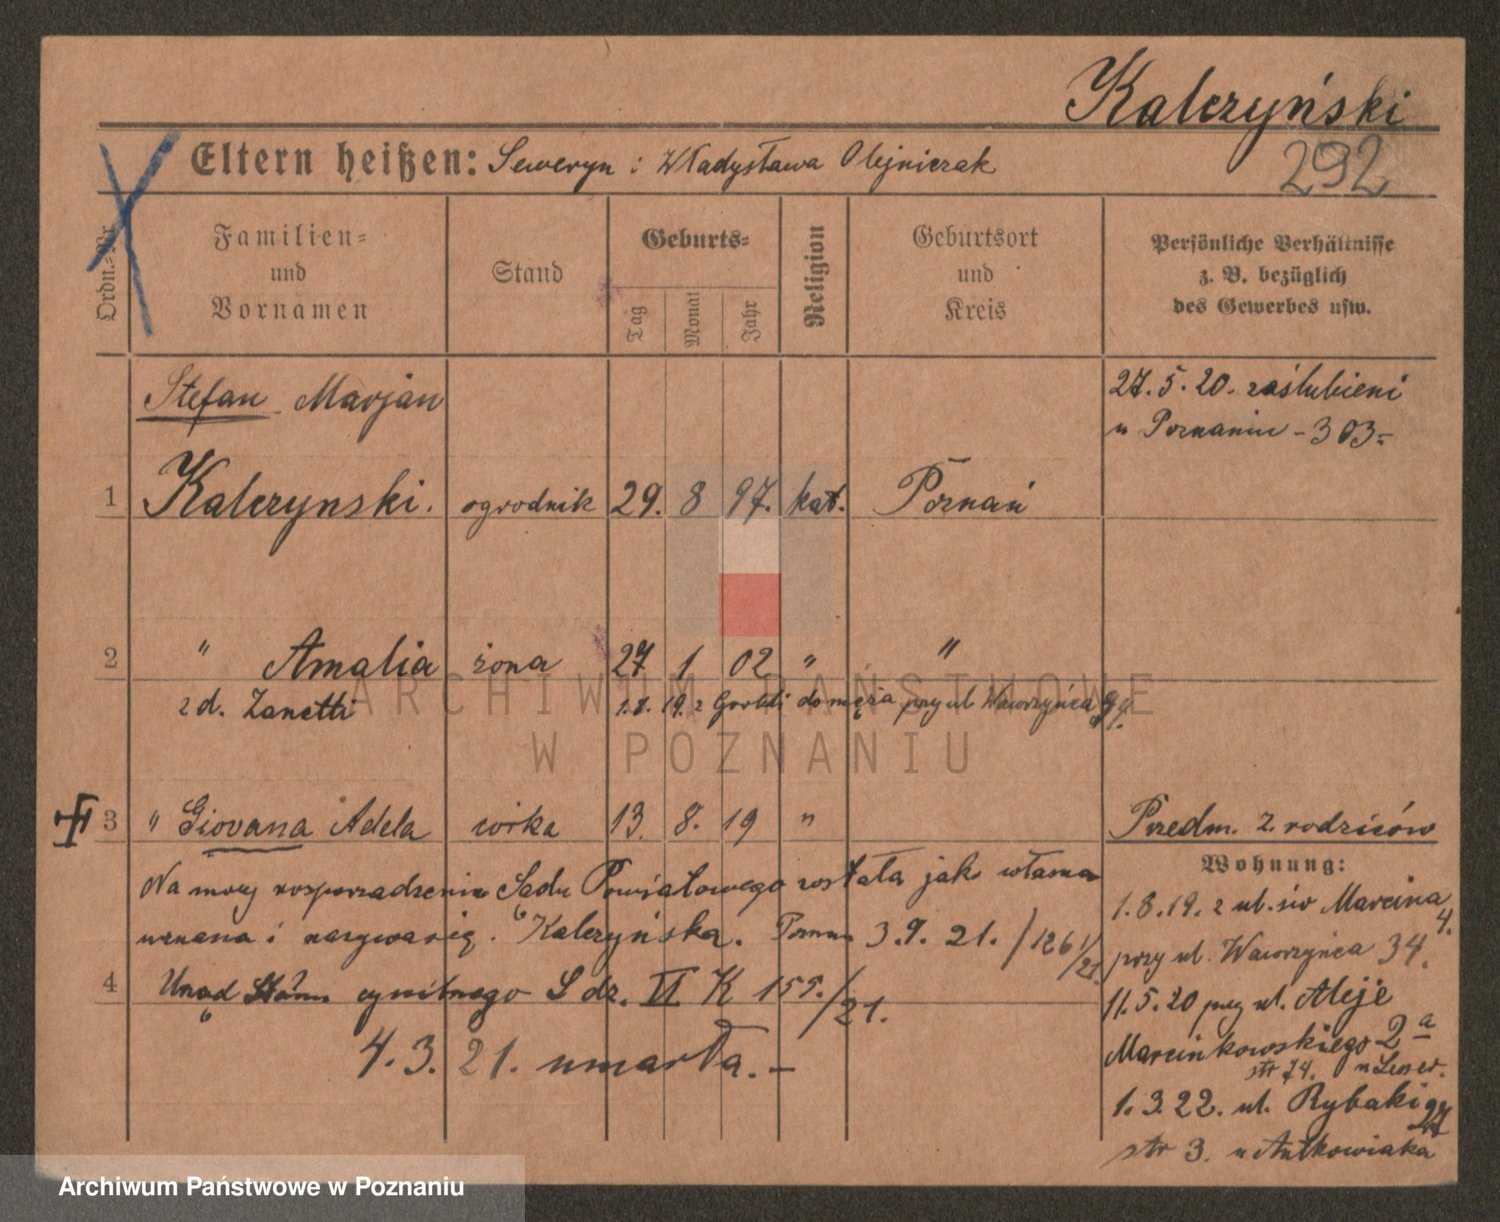 Kalczyński
Eltern heißen: Seweryn i Władysława Olejniczak
292
Ordn.-Nr.
Familien-
und
Vornamen
Stand
Geburts-
Tag
Monat
Jahr
Religion
Geburtsort
und
Kreis
Persönliche Verhältnisse
z. B. bezüglich
des Gewerbes usw.
Stefan Marjan
27. 5. 20. zaślubieni
w Poznaniu - 303 -
1 Kalczynski. ogrodnik 29. 8 97. kat. Poznań
2 " Amalia żona 27 1 02 " "
z d. Zanetti 1.8. 19. z do męża przy ul Wawrzyńca
3 " Giovana Adela córka 13. 8. 19 " Przedm. z. rodziców
Na mocy rosporządzenia Sądu Powiatowego została jak własna
uznana i nazywa się. Kalczyńska. 3. 9. 21. / 126 1/21.
4 Urząd Stanu cywilnego L dz. VI K 155./21.
4. 3. 21. umarła. -
Wohnung:
1.8.19. z ul. św Marcina 4.
przy ul. Wawrzyńca 34.
11.5.20 ul. Aleje
Marcinkowskiego 2 a
str 74.
1. 3. 22. ul. Rybaki
str 3. u Antkowiaka
ARCHIWUM PAŃSTWOWE
W POZNANIU
Archiwum Państwowe w Poznaniu